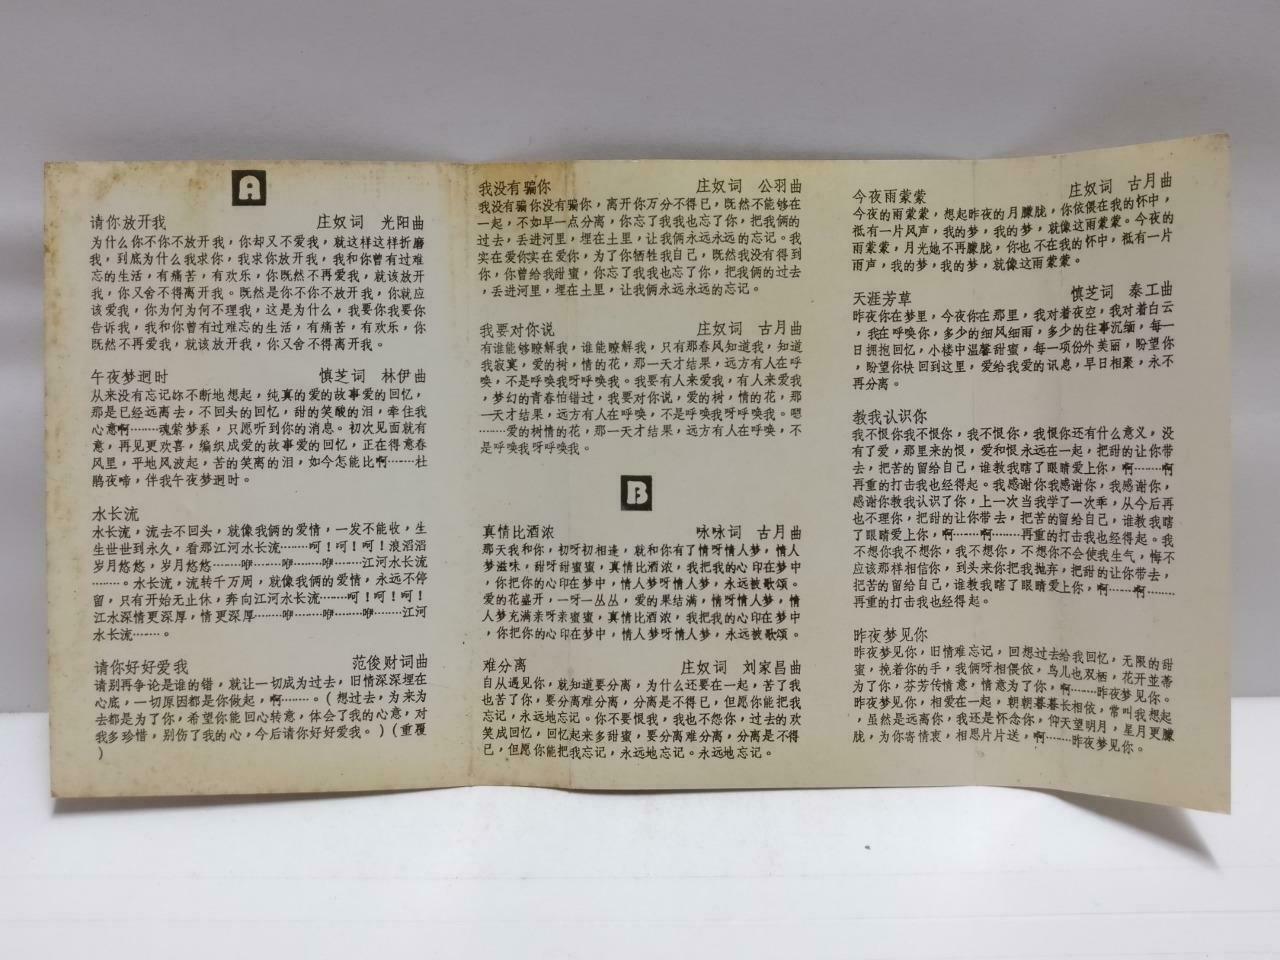 A
请你放开我 庄奴词 光阳曲
为什么你不你不放开我，你却又不爱我，就这样这样折磨
我，到底为什么我求你，我求你放开我，我和你曾有过难
忘的生活，有痛苦，有欢乐，你既然不再爱我，就该放开
我，你又舍不得离开我。既然是你不你不放开我，你就应
该爱我，你为何为何不理我，这是为什么，我要你我要你
告诉我，我和你曾有过难忘的生活，有痛苦，有欢乐，你
既然不再爱我，就该放开我，你又舍不得离开我。
午夜梦迥时 慎芝词 林伊曲
从来没有忘记妳不断地想起，纯真的爱的故事爱的回忆，
那是已经远离去，不回头的回忆，甜的笑酸的泪，牵住我
心意啊………魂萦梦系，只愿听到你的消息。初次见面就有
意，再见更欢喜，编织成爱的故事爱的回忆，正在得意春
风里，平地风波起，苦的笑离的泪，如今怎能比啊………杜
鹃夜啼，伴我午夜梦迥时。
水长流
水长流，流去不回头，就像我俩的爱情，一发不能收，生
生世世到永久，看那江河水长流………呵！呵！呵！浪滔滔
岁月悠悠，岁月悠悠………咿………咿………咿………江河水长流
………。水长流，流转千万周，就像我俩的爱情，永远不停
留，只有开始无止休，奔向江河水长流………呵！呵！呵！
江水深情更深厚，情更深厚………咿………咿………咿………江河
水长流………。
请你好好爱我 范俊财词曲
请别再争论是谁的错，就让一切成为过去，旧情深深埋在
心底，一切原因都是你做起，啊………。（想过去，为来为
去都是为了你，希望你能回心转意，体会了我的心意，对
我多珍惜，别伤了我的心，今后请你好好爱我。）（重覆
）
我没有骗你 庄奴词 公羽曲
我没有骗你没有骗你，离开你万分不得已，既然不能够在
一起，不如早一点分离，你忘了我我也忘了你，把我俩的
过去，丢进河里，埋在土里，让我俩永远永远的忘记。我
实在爱你实在爱你，为了你牺牲我自己，既然我没有得到
你，你曾给我甜蜜，你忘了我我也忘了你，把我俩的过去
，丢进河里，埋在土里，让我俩永远永远的忘记。
我要对你说 庄奴词 古月曲
有谁能够瞭解我，谁能瞭解我，只有那春风知道我，知道
我寂寞，爱的树，情的花，那一天才结果，远方有人在呼
唤，不是呼唤我呀呼唤我。我要有人来爱我，有人来爱我
，梦幻的青春怕错过，我要对你说，爱的树，情的花，那
一天才结果，远方有人在呼唤，不是呼唤我呀呼唤我。嗯
………爱的树情的花，那一天才结果，远方有人在呼唤，不
是呼唤我呀呼唤我。
B
真情比酒浓 咏咏词 古月曲
那天我和你，初呀初相逢，就和你有了情呀情人梦，情人
梦滋味，甜呀甜蜜蜜，真情比酒浓，我把我的心印在梦中
，你把你的心印在梦中，情人梦呀情人梦，永远被歌颂。
爱的花盛开，一呀一丛丛，爱的果结满，情呀情人梦，情
人梦充满亲呀亲蜜蜜，真情比酒浓，我把我的心印在梦中
，你把你的心印在梦中，情人梦呀情人梦，永远被歌颂。
难分离 庄奴词 刘家昌曲
自从遇见你，就知道要分离，为什么还要在一起，苦了我
也苦了你，要分离难分离，分离是不得已，但愿你能把我
忘记，永远地忘记。你不要恨我，我也不怨你，过去的欢
笑成回忆，回忆起来多甜蜜，要分离难分离，分离是不得
已，但愿你能把我忘记，永远地忘记。永远地忘记。
今夜雨蒙蒙 庄奴词 古月曲
今夜的雨蒙蒙，想起昨夜的月朦胧，你依偎在我的怀中，
祗有一片风声，我的梦，我的梦，就像这雨蒙蒙。今夜的
雨蒙蒙，月光她不再朦胧，你也不在我的怀中，祗有一片
雨声，我的梦，我的梦，就像这雨蒙蒙。
天涯芳草 慎芝词 秦工曲
昨夜你在梦里，今夜你在那里，我对着夜空，我对着白云
，我在呼唤你，多少的细风细雨，多少的往事沉缅，每一
日拥抱回忆，小楼中温馨甜蜜，每一项份外美丽，盼望你
，盼望你快回到这里，爱给我爱的讯息，早日相聚，永不
再分离。
教我认识你
我不恨你我不恨你，我不恨你，我恨你还有什么意义，没
有了爱，那里来的恨，爱和恨永远在一起，把甜的让你带
去，把苦的留给自己，谁教我瞎了眼睛爱上你，啊………啊
再重的打击我也经得起。我感谢你我感谢你，我感谢你，
感谢你教我认识了你，上一次当我学了一次乖，从今后再
也不理你，把甜的让你带去，把苦的留给自己，谁教我瞎
了眼睛爱上你，啊………啊………再重的打击我也经得起。我
不想你我不想你，我不想你，不想你不会使我生气，悔不
应该那样相信你，到头来你把我抛弃，把甜的让你带去，
把苦的留给自己，谁教我瞎了眼睛爱上你，啊………啊………
再重的打击我也经得起。
昨夜梦见你
昨夜梦见你，旧情难忘记，回想过去给我回忆，无限的甜
蜜，挽着你的手，我俩呀相偎依，鸟儿也双栖，花开並蒂
为了你，芬芳传情意，情意为了你，啊………昨夜梦见你。
昨夜梦见你，相爱在一起，朝朝暮暮长相依，常叫我想起
，虽然是远离你，我还是怀念你，仰天望明月，星月更朦
胧，为你寄情衷，相思片片送，啊………昨夜梦见你。